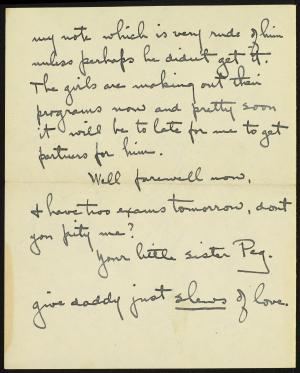 my note which is very rude of him
unless perhaps he didn't get it.
The girls are making out their
programs now and pretty soon
it will be to late for me to get
partners for him.
Well farewell now,
I have two exams tomorrow, don't
you pity me?
Your little sister Peg.
give daddy just slews of love.